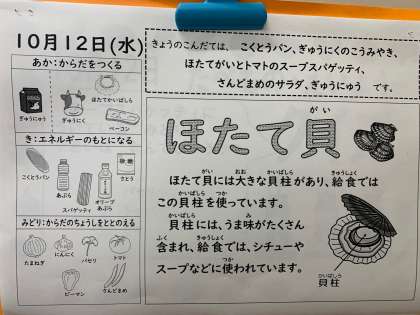 10月12日(水)
あか:からだをつくる
ぎゅうにゅう
ぎゅうにく
ほたてかいばしら
ベーコン
き:エネルギーのもとになる
こくとうパン
あぶら
スパゲッティ
オリーブ
あぶら
さとう
みどり:からだのちょうしをととのえる
たまねぎ
にんにく
パセリ
トマト
ピーマン
さんどまめ
きょうのこんだては、こくとうパン、ぎゅうにくのこうみやき、
ほたてがいとトマトのスープスパゲッティ、
さんどまめのサラダ、ぎゅうにゅう です。
がい
ほたて貝
がい おお かいばしら きゅうしょく
ほたて貝には大きな貝柱があり、給食では
かいばしら つか
この貝柱を使っています。
かいばしら み
貝柱には、うま味がたくさん
ふく きゅうしょく
含まれ、給食では、シチューや
つか
スープなどに使われています。
かいばしら
貝柱